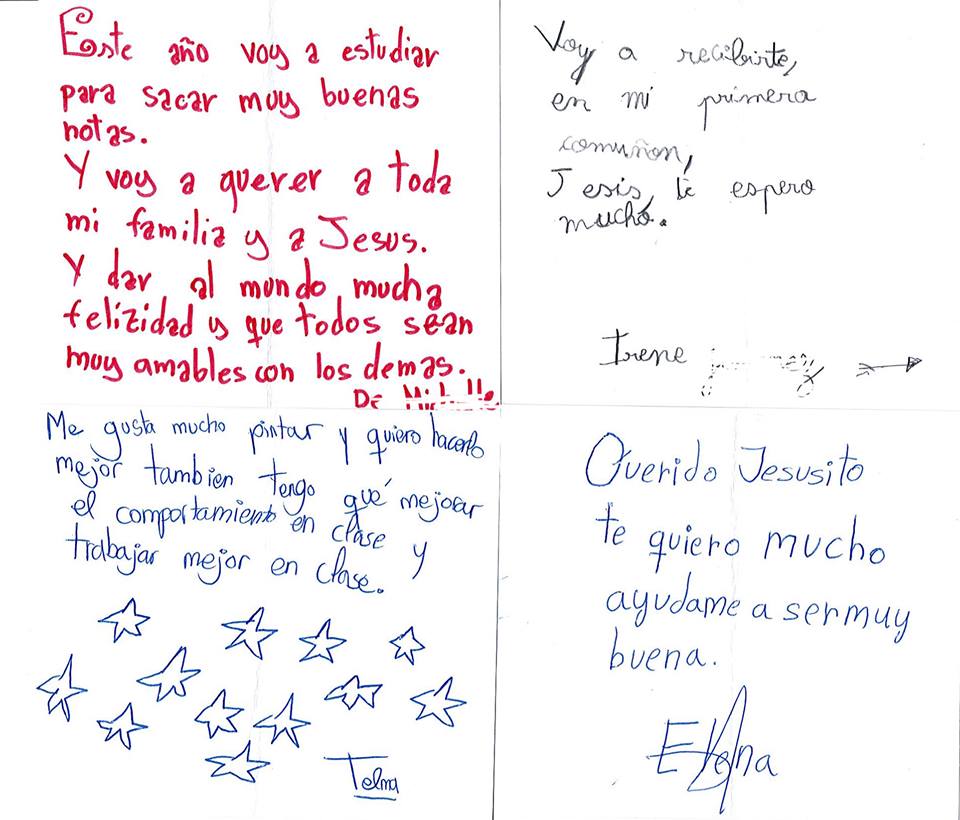 Este año voy a estudiar
para sacar muy buenas
notas.
Y voy a querer a toda
mi familia y a Jesus.
Y dar al mundo mucha
felizidad y que todos sean
muy amables con los demas.
De
Voy a recibirte,
en mi primera
comuñon,
Jesis, te espero
mucho.
Irene
Me gusta mucho pintar y quiero hacerlo
mejor tambien tengo qué mejorar
el comportamiento en clase y
trabajar mejor en clase.
Telma
Querido Jesusito
te quiero mucho
ayudame a ser muy
buena.
Elena